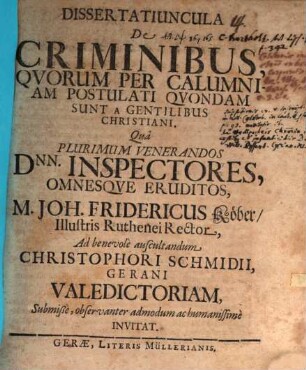 DISSERTATIUNCULA
De
CRIMINIBUS,
QVORUM PER CALUMNI-
AM POSTULATI QVONDAM
SUNT A GENTILIBUS
CHRISTIANI,
Quâ
PLURIMUM VENERANDOS
DNN. INSPECTORES,
OMNESQVE ERUDITOS,
M. JOH. FRIDERICUS Köber/
Illustris Ruthenei Rector,
Ad benevole auscultandum
CHRISTOPHORI SCHMIDII,
GERANI
VALEDICTORIAM,
Submissè, observanter admodum ac humanissimè
INVITAT.
GERÆ, LITERIS MÜLLERIANIS.